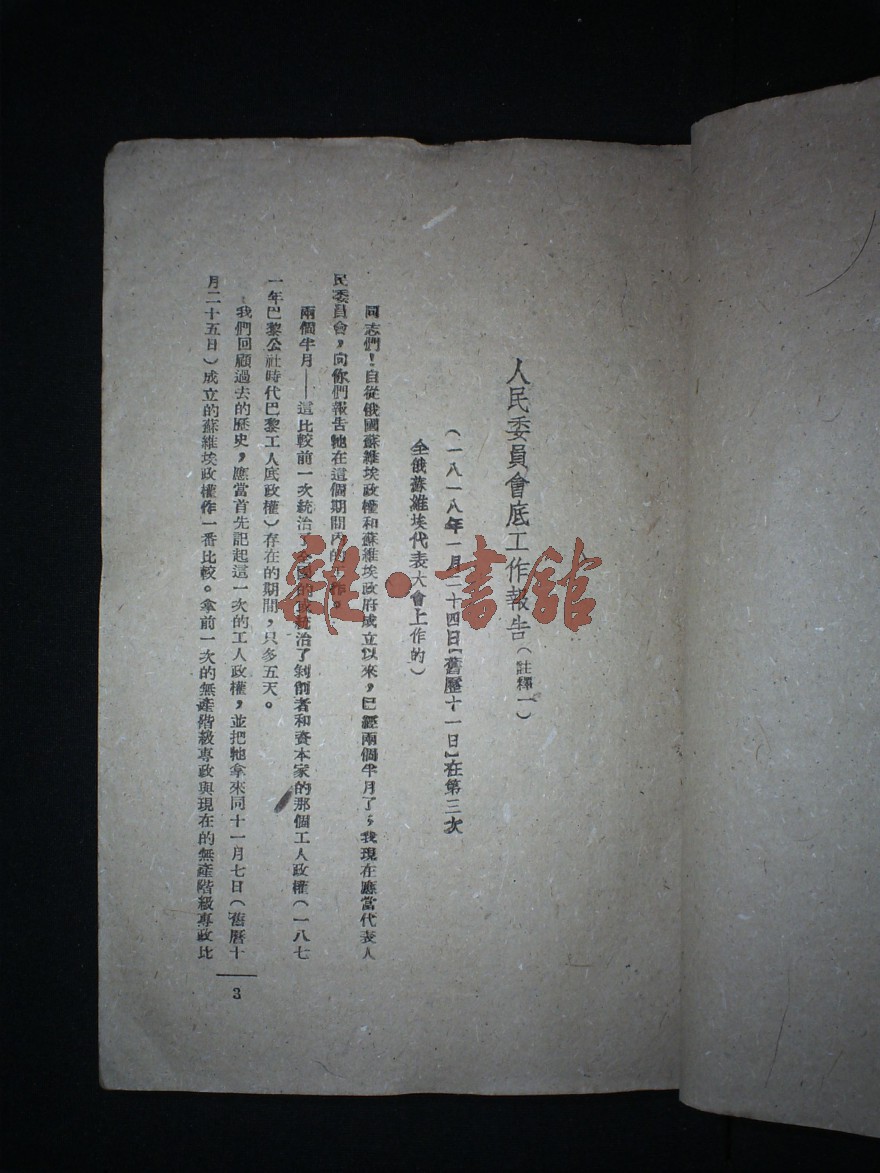 人民委員會底工作報告（註釋一）
（一八一八年一月二十四日［舊曆十一日］在第三次
全俄蘇維埃代表大會上作的）
同志們！自從俄國蘇維埃政權和蘇維埃政府成立以來，已經兩個半月了，我現在應當代表人
民委員會，向你們報告牠在這個期間內的工作。
兩個半月——這比較前一次統治了全國的或統治了剝削者和資本家的那個工人政權（一八七
一年巴黎公社時代巴黎工人底政權）存在的期間，只多五天。
我們回顧過去的歷史，應當首先記起這一次的工人政權，並把牠拿來同十一月七日（舊曆十
月二十五日）成立的蘇維埃政權作一番比較。拿前一次的無產階級專政與現在的無產階級專政比
3
雜·書館